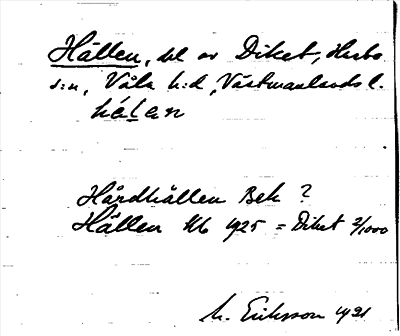 Hällen, del av Diket, Harbo
s:n, Våla h:d, Västmanlands l.
hä́lan
Hårdhällen Bek ?
Hällen Kb 1925 = Diket 2/1000
M. Eriksson 1931